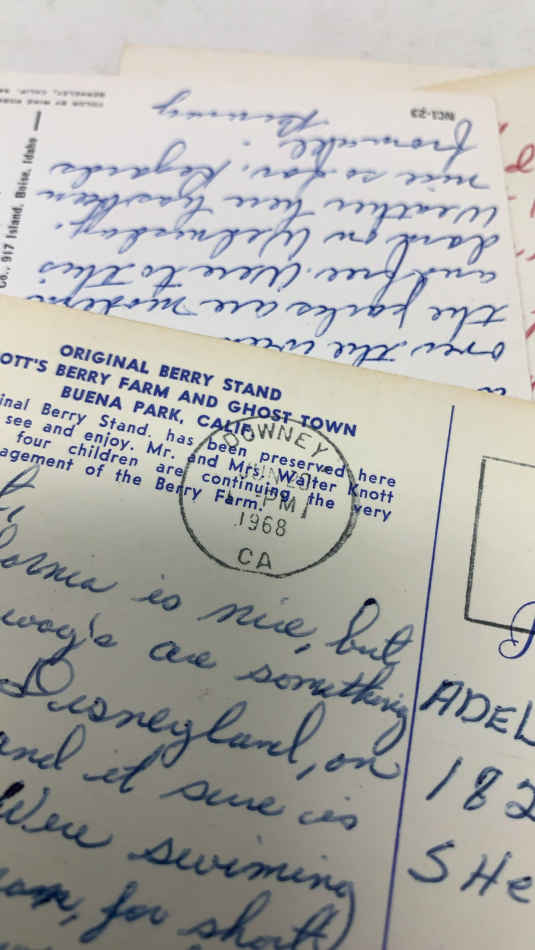 NCI-23
COLOR BY MIKE
BERKELEY, CALIF.
Co., 917 Island, Boise, Idaho
over the
the parks are modern
and free. Were to this
dard on Wednesday.
Weather here has been
nice so far. Regards
from all.
ORIGINAL BERRY STAND
OTT'S BERRY FARM AND GHOST TOWN
BUENA PARK, CALIF.
inal Berry Stand, has been preserved here
see and enjoy. Mr. and Mrs. Walter Knott
four children are continuing the very
agement of the Berry Farm.
DOWNEY
JUN
PM
1968
CA
ornia is nice, but
way's are something
Disneyland, on
and it sure is
Were swiming
for short)
ADEL
182
SHe